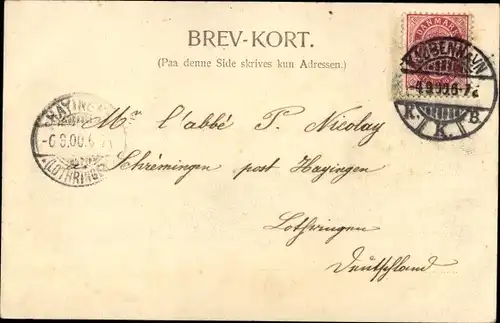 BREV-KORT.
(Paa denne Side skrives kun Adressen.)
DANMARK
KJØBENHAVN
-4.9.00.6-7
K. K. B.
HAYINGEN
-6.9.00.
(LOTHRINGEN)
Mr l'abbé P. Nicolay
Schrémingen post Hayingen
Lothringen
Deutschland